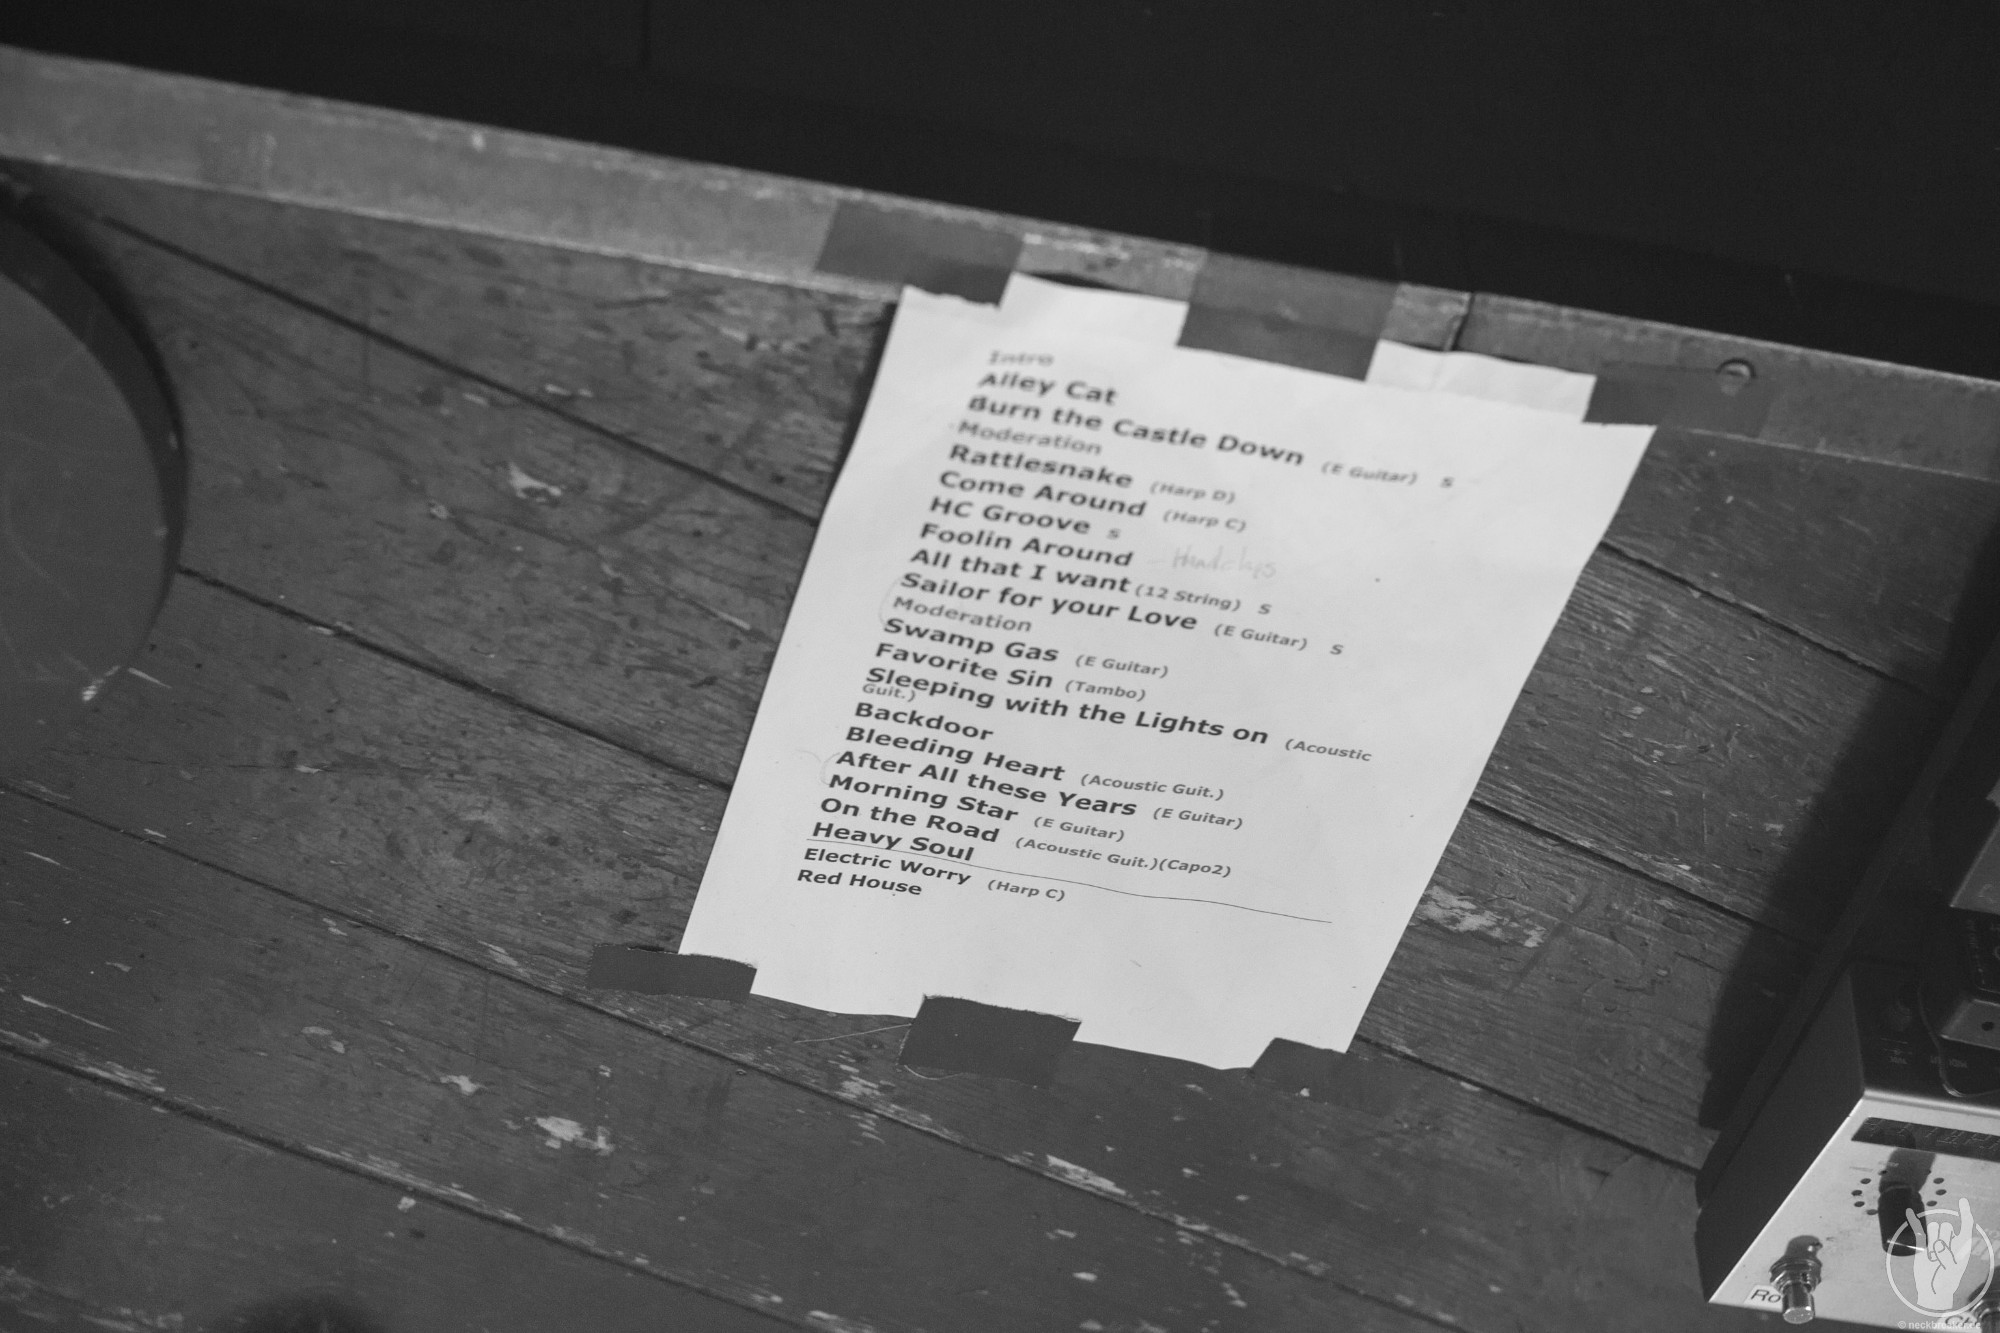 Intro
Alley Cat
Burn the Castle Down (E Guitar) S
Moderation
Rattlesnake (Harp D)
Come Around (Harp C)
HC Groove S
Foolin Around
All that I want (12 String) S
Sailor for your Love (E Guitar) S
Moderation
Swamp Gas (E Guitar)
Favorite Sin (Tambo)
Sleeping with the Lights on (Acoustic
Guit.)
Backdoor
Bleeding Heart (Acoustic Guit.)
After All these Years (E Guitar)
Morning Star (E Guitar)
On the Road (Acoustic Guit.)(Capo2)
Heavy Soul
Electric Worry (Harp C)
Red House
Ro
© neckbreaker.de